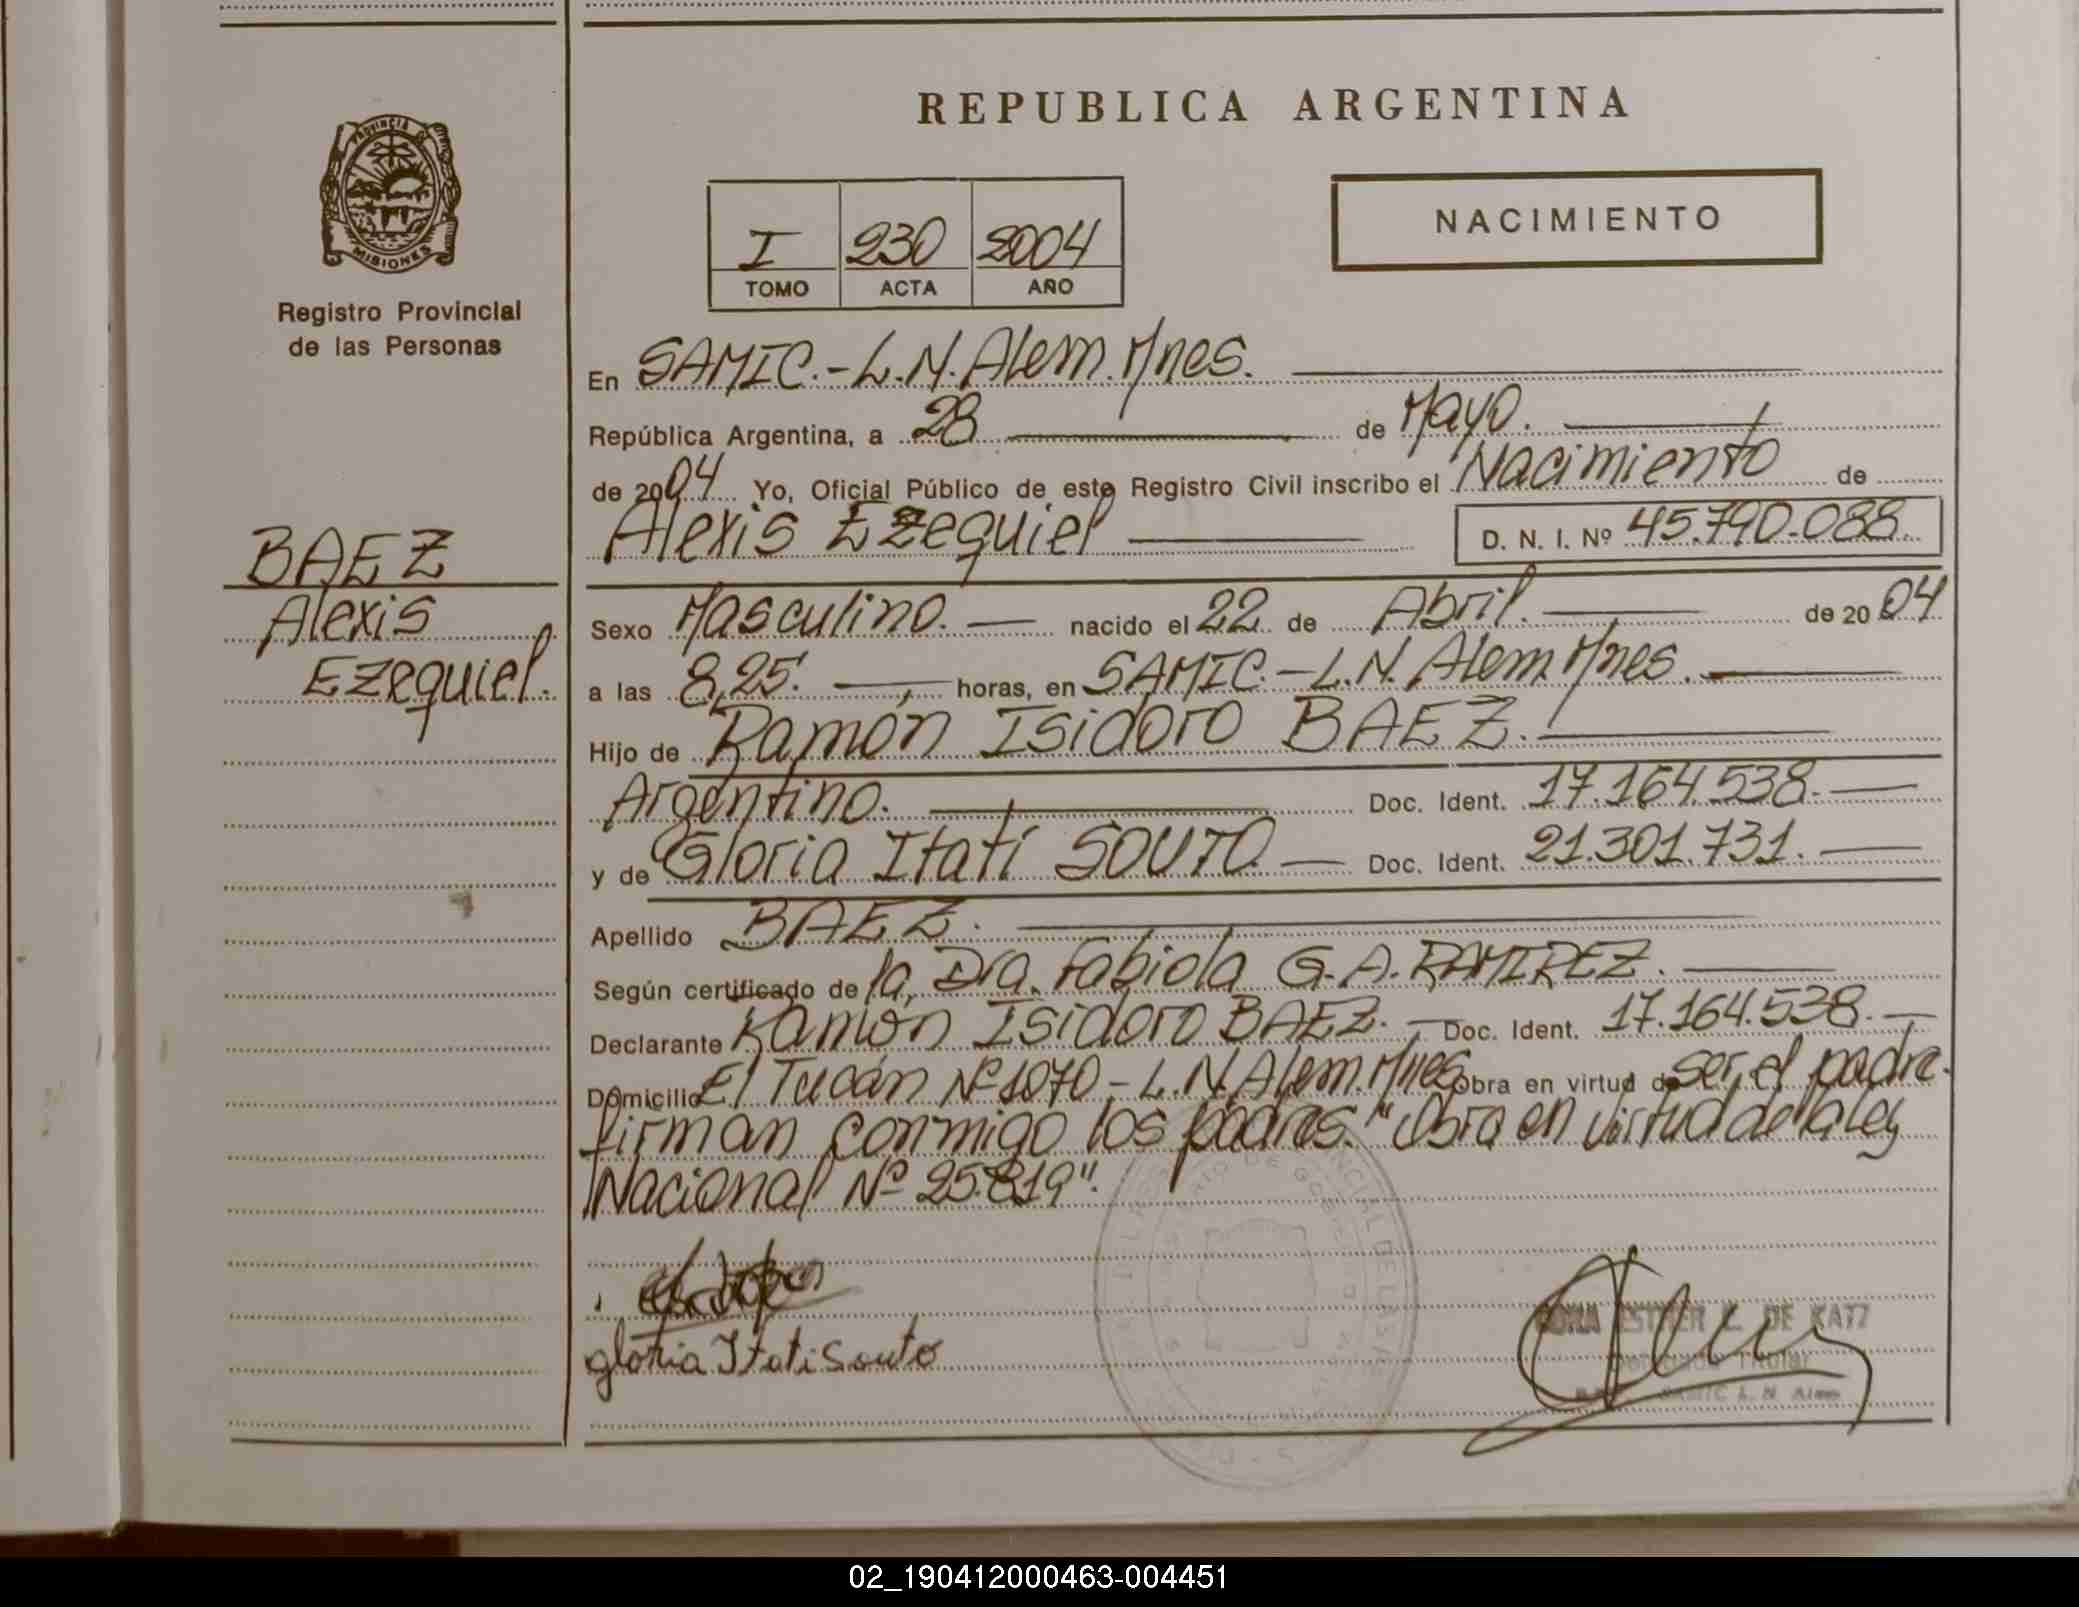 REPUBLICA ARGENTINA
PROVINCIA DE
MISIONES
Registro Provincial
de las Personas
NACIMIENTO
I 230 2004
TOMO ACTA AÑO
En SAMIC.-L.N.Alem.Mnes.
República Argentina, a 28 de Mayo.
de 2004 Yo, Oficial Público de este Registro Civil inscribo el Nacimiento de
Alexis Ezequiel D. N. I. Nº 45.790.088.
BAEZ
Alexis
Ezequiel.
Sexo Masculino. nacido el 22 de Abril. de 2004
a las 8,25. horas, en SAMIC.-L.N. Alem.Mnes.
Hijo de Ramón Isidoro BAEZ.
Argentino. Doc. Ident. 17.164.538.
y de Gloria Itatí SOUTO. Doc. Ident. 21.301.731.
Apellido BAEZ.
Según certificado de la, Dra. Fabiola G.A. RAMIREZ.
Declarante Ramón Isidoro BAEZ. Doc. Ident. 17.164.538.
Domicilio El Tucán Nº 1070-L.N.Alem.Mnes. Obra en virtud de ser, el padre.
firman conmigo los padres. "Obra en virtud de la Ley
Nacional Nº 25.819".
gloria Itati Souto
ESTHER DE KATZ
Titular
SAMIC L. N. Alem
02_190412000463-004451